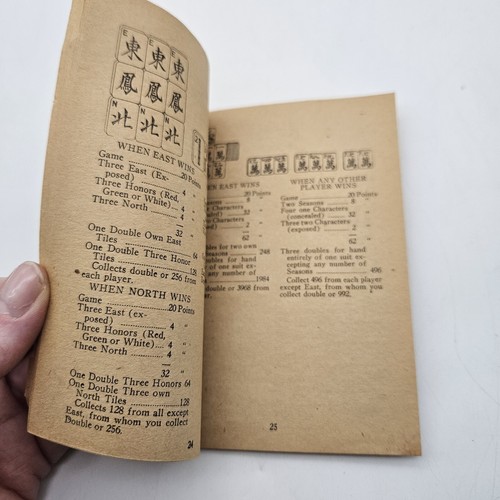 E E E
東 東 東
鳳 鳳 鳳
N N N
北 北 北
WHEN EAST WINS
Game 20 Points
Three East (Ex-
posed) 4 "
Three Honors (Red,
Green or White) 4 "
Three North 4 "
32 "
One Double Own East
Tiles 64
One Double Three Honor
Tiles 128
Collects double or 256 from
each player.
WHEN NORTH WINS
Game 20 Points
Three East (ex-
posed) 4 "
Three Honors (Red,
Green or White) 4 "
Three North 4 "
32 "
One Double Three Honors 64
One Double Three own
North Tiles 128
Collects 128 from all except
East, from whom you collect
Double or 256.
24
EAST WINS
20 Points
8
32
2
62
bles for two own
248
bles for hand
of one suit ex-
any number of
1984
double or 3968 from
WHEN ANY OTHER
PLAYER WINS
Game 20 Points
Two Seasons 8 "
Four one Characters
(concealed) 32 "
Three two Characters
(exposed) 2 "
62
Three doubles for hand
entirely of one suit ex-
cepting any number of
Seasons 496
Collect 496 from each player
except East, from whom you
collect double or 992.
25